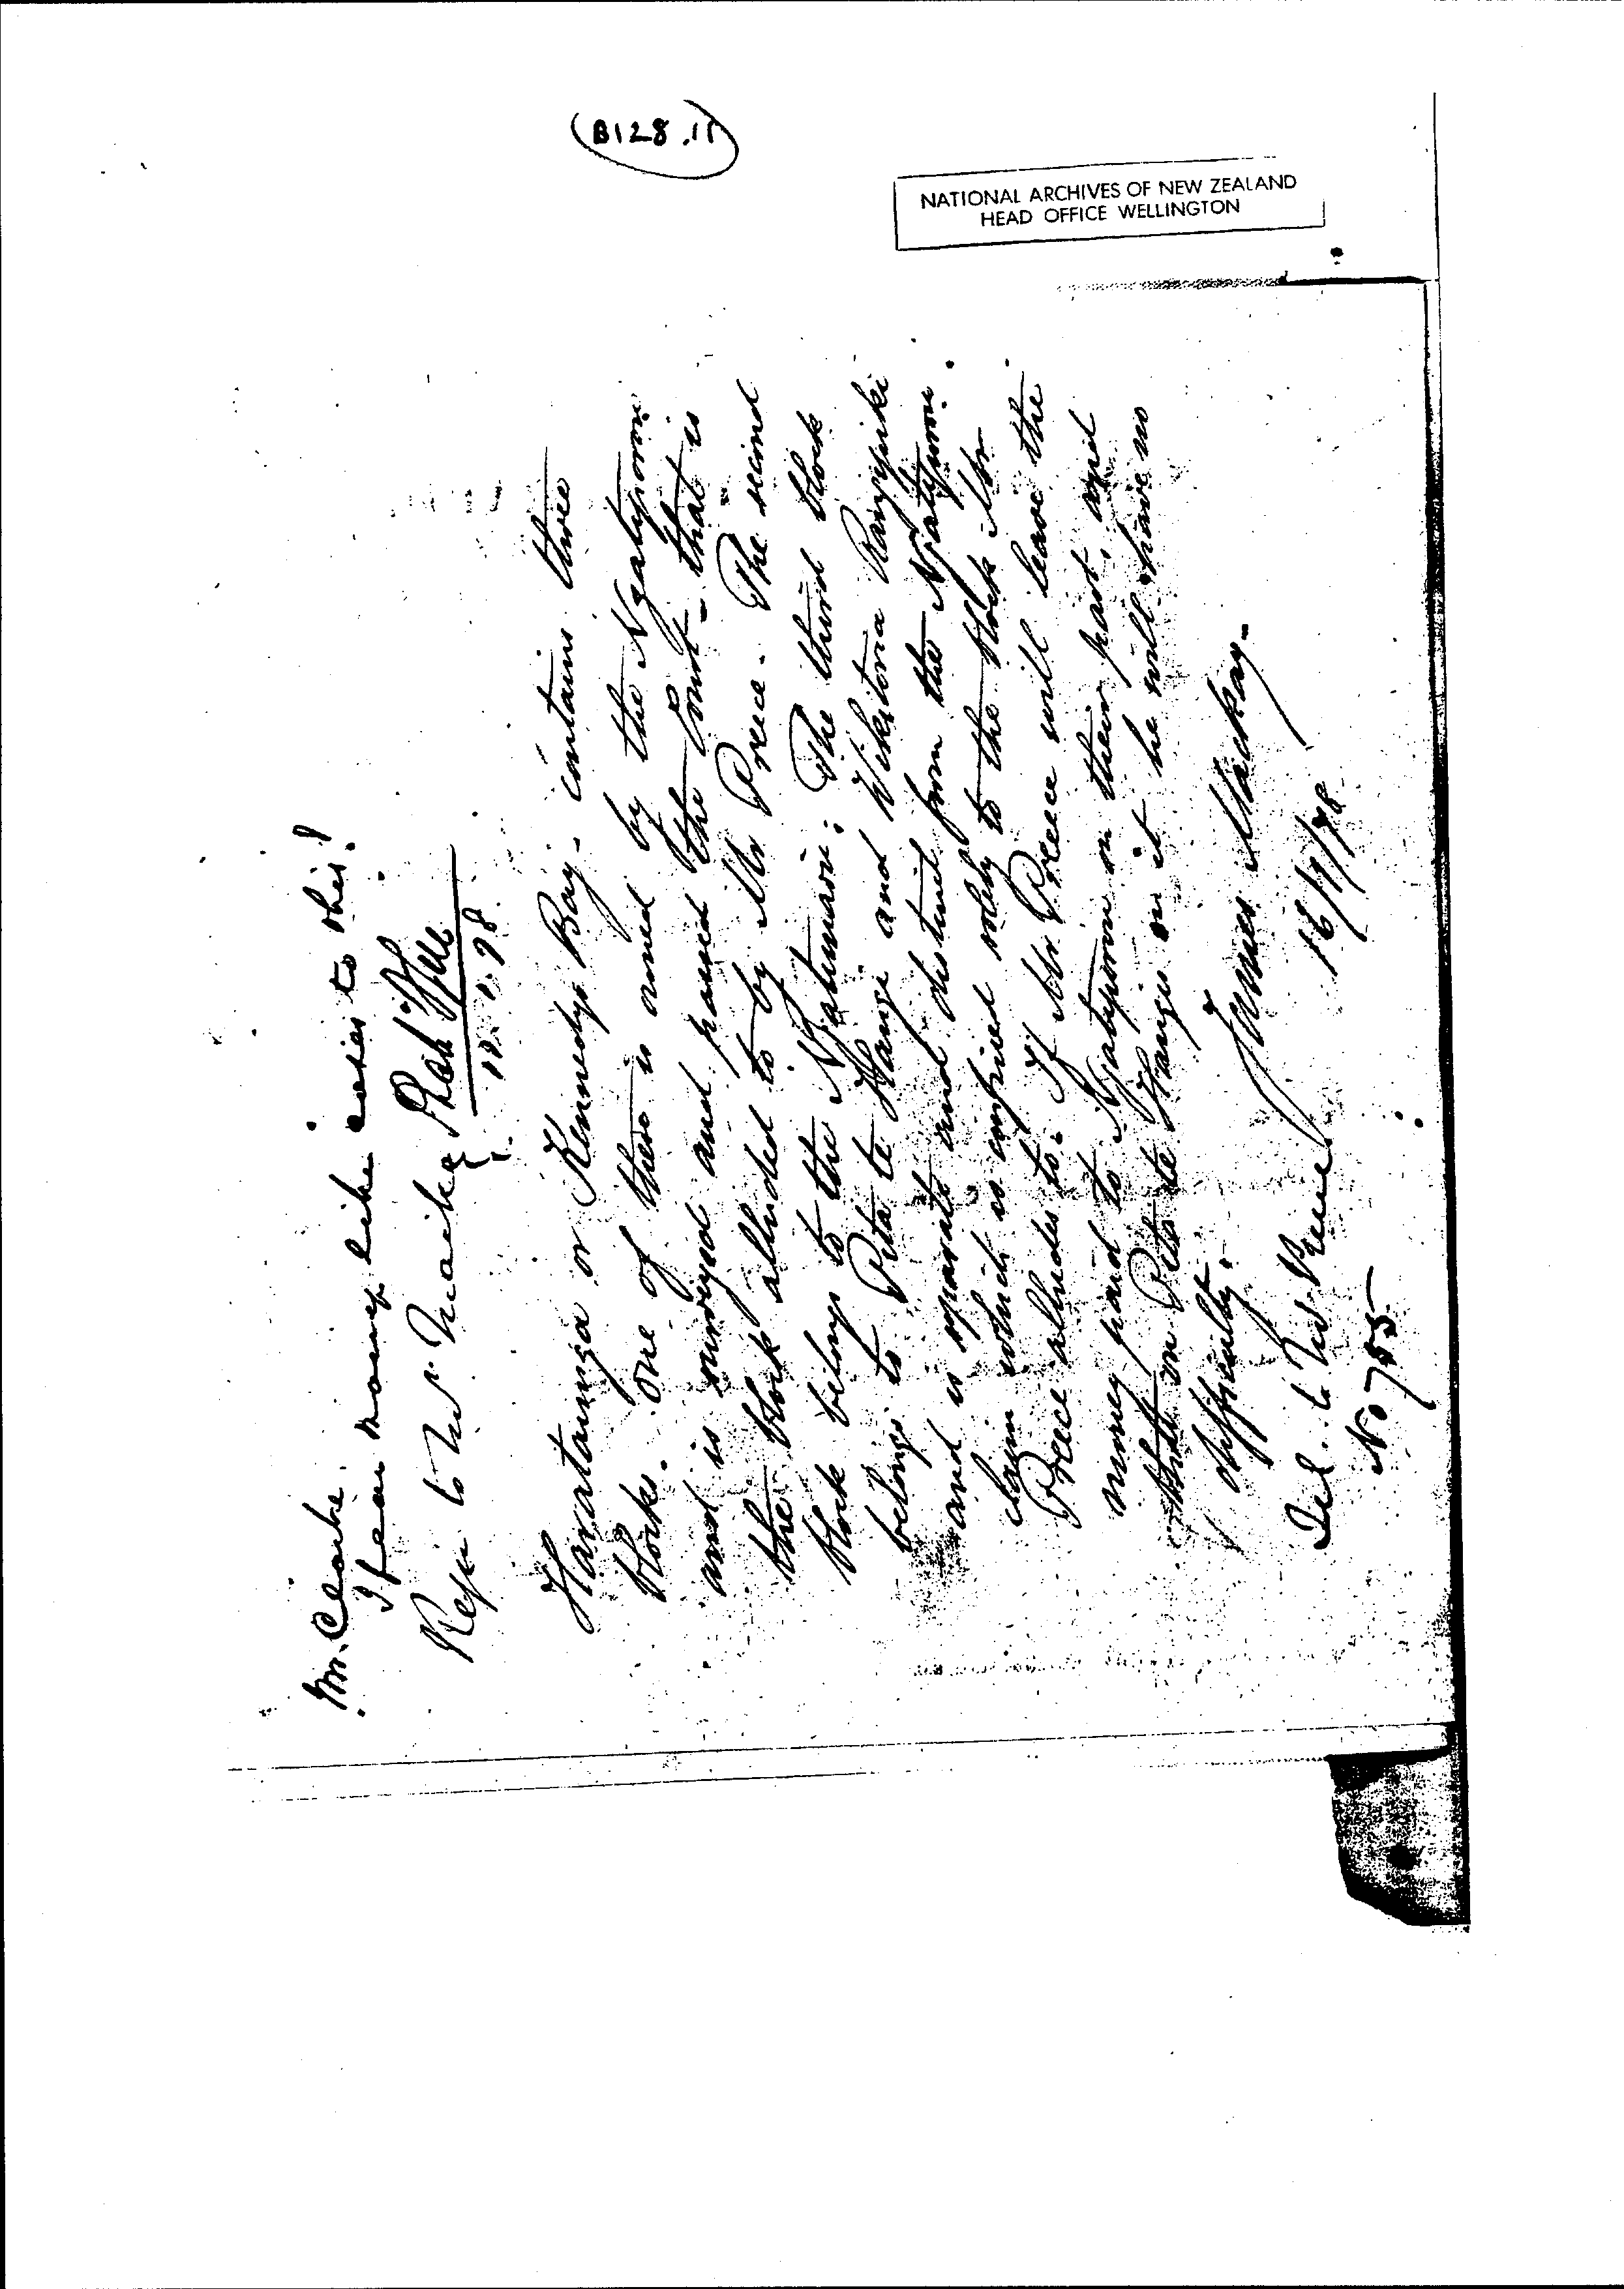 (B128.11)
NATIONAL ARCHIVES OF NEW ZEALAND
HEAD OFFICE WELLINGTON
Mr. Clarke.
I fear money like this!
Refr to Mr
18.1.78
Harataunga or Kennedys Bay - contains three
blocks. One of these is owned by the Ngatiporou
and is surveyed and passed the Court - that is
the block alluded to by Mr Preece. The second
block belongs to the Ngatimaru: The third block
belongs to Pita te Hangi and Wikitoria Rangipiki
and is separate and distinct from the Ngatiporou.
claim which is confined solely to the block Mr
Preece alludes to. If Mr Preece will leave the
money paid to Ngatiporou on their part, and
that on Pita te Hangis on it he will have no
difficulty.
James Mackay.
16/1/78
Tel. to Mr Preece
No 755